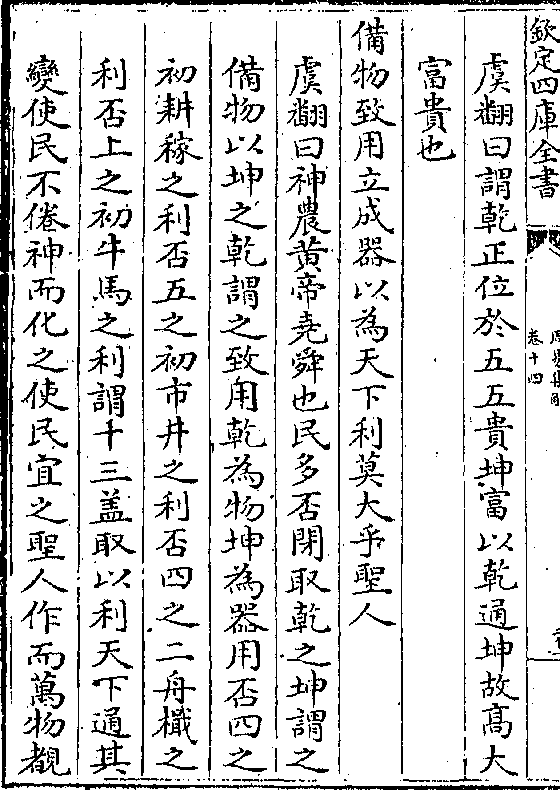 欽定四庫全書
卷十四
虞翻曰謂乾正位於五五貴坤富以乾通坤故髙大
富貴也
備物致用立成器以為天下利莫大乎聖人
虞翻曰神農黄帝堯舜也民多否閉取乾之坤謂之
備物以坤之乾謂之致用乾為物坤為器用否四之
初耕稼之利否五之初市井之利否四之二舟檝之
利否上之初牛馬之利謂十三盖取以利天下通其
變使民不倦神而化之使民宜之聖人作而萬物覩